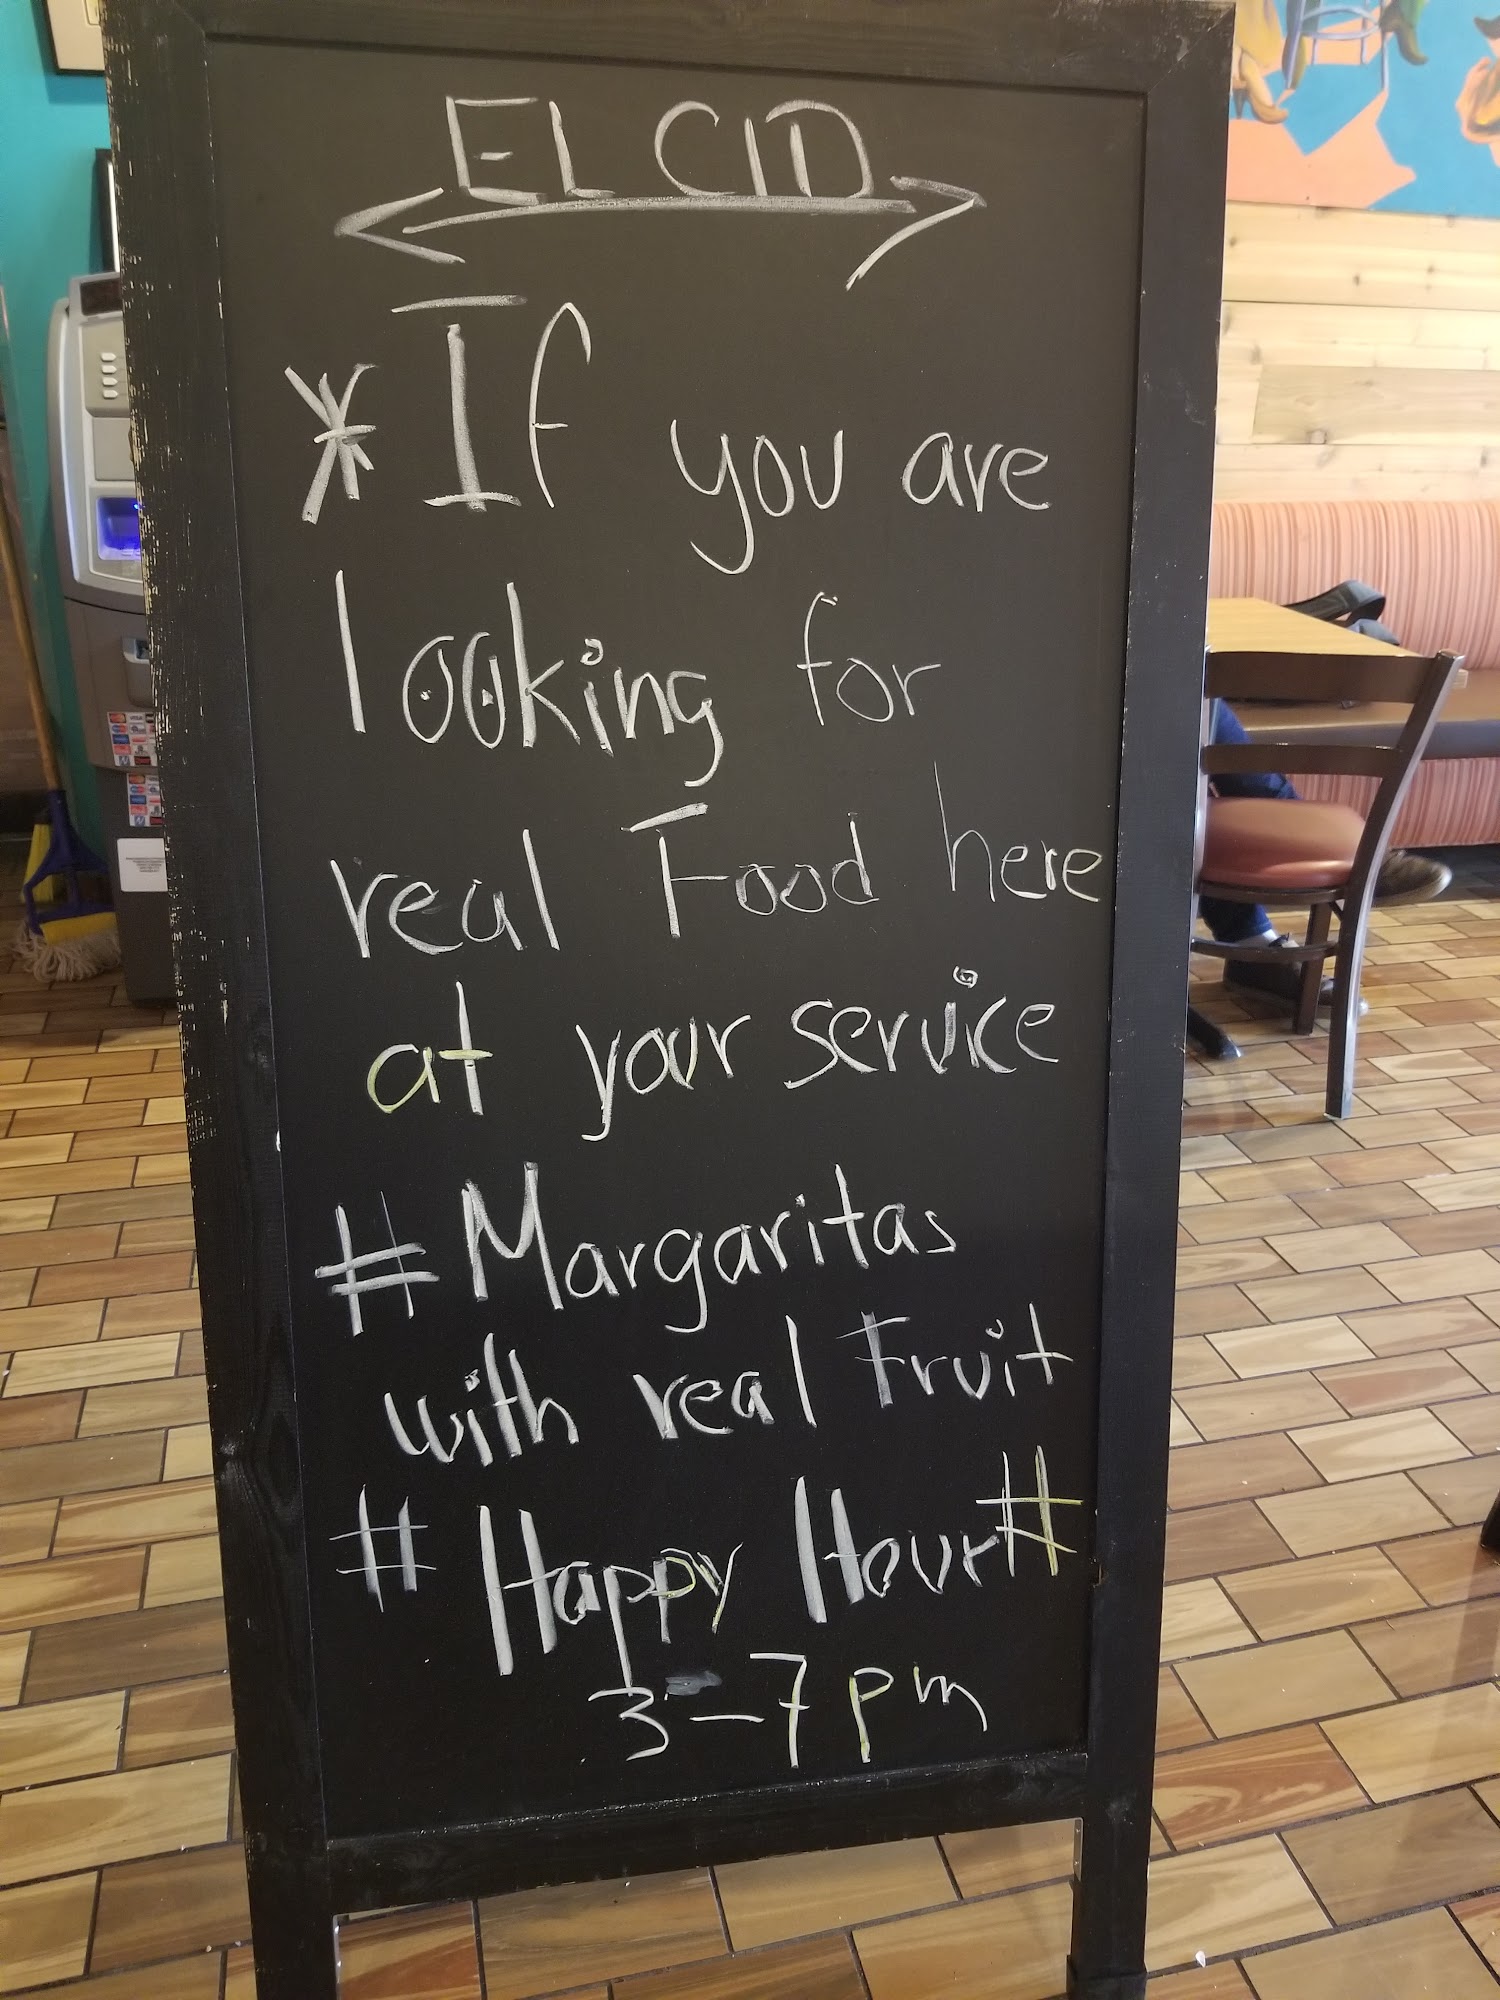 EL CID
* If you are
looking for
real Food here
at your service
# Margaritas
with real Fruit
# Happy Hour #
3-7 pm